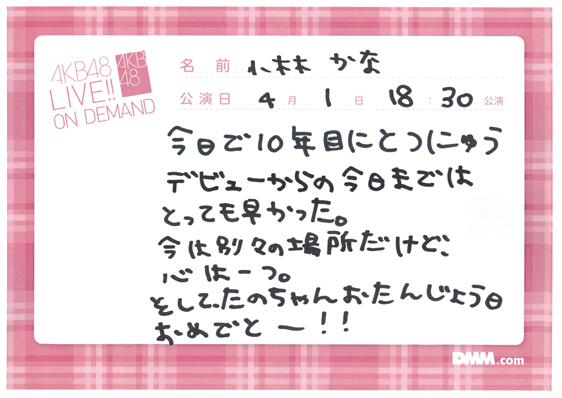 AKB48
LIVE!!
ON DEMAND
AKB
48
名前 小林 かな
公演日 4月 1日 18:30公演
今日で10年目にとつにゅう
デビューからの今日までは
とっても早かった。
今は別々の場所だけど、
心は一つ。
そして、たのちゃんおたんじょう日
おめでと〜!!
DMM.com